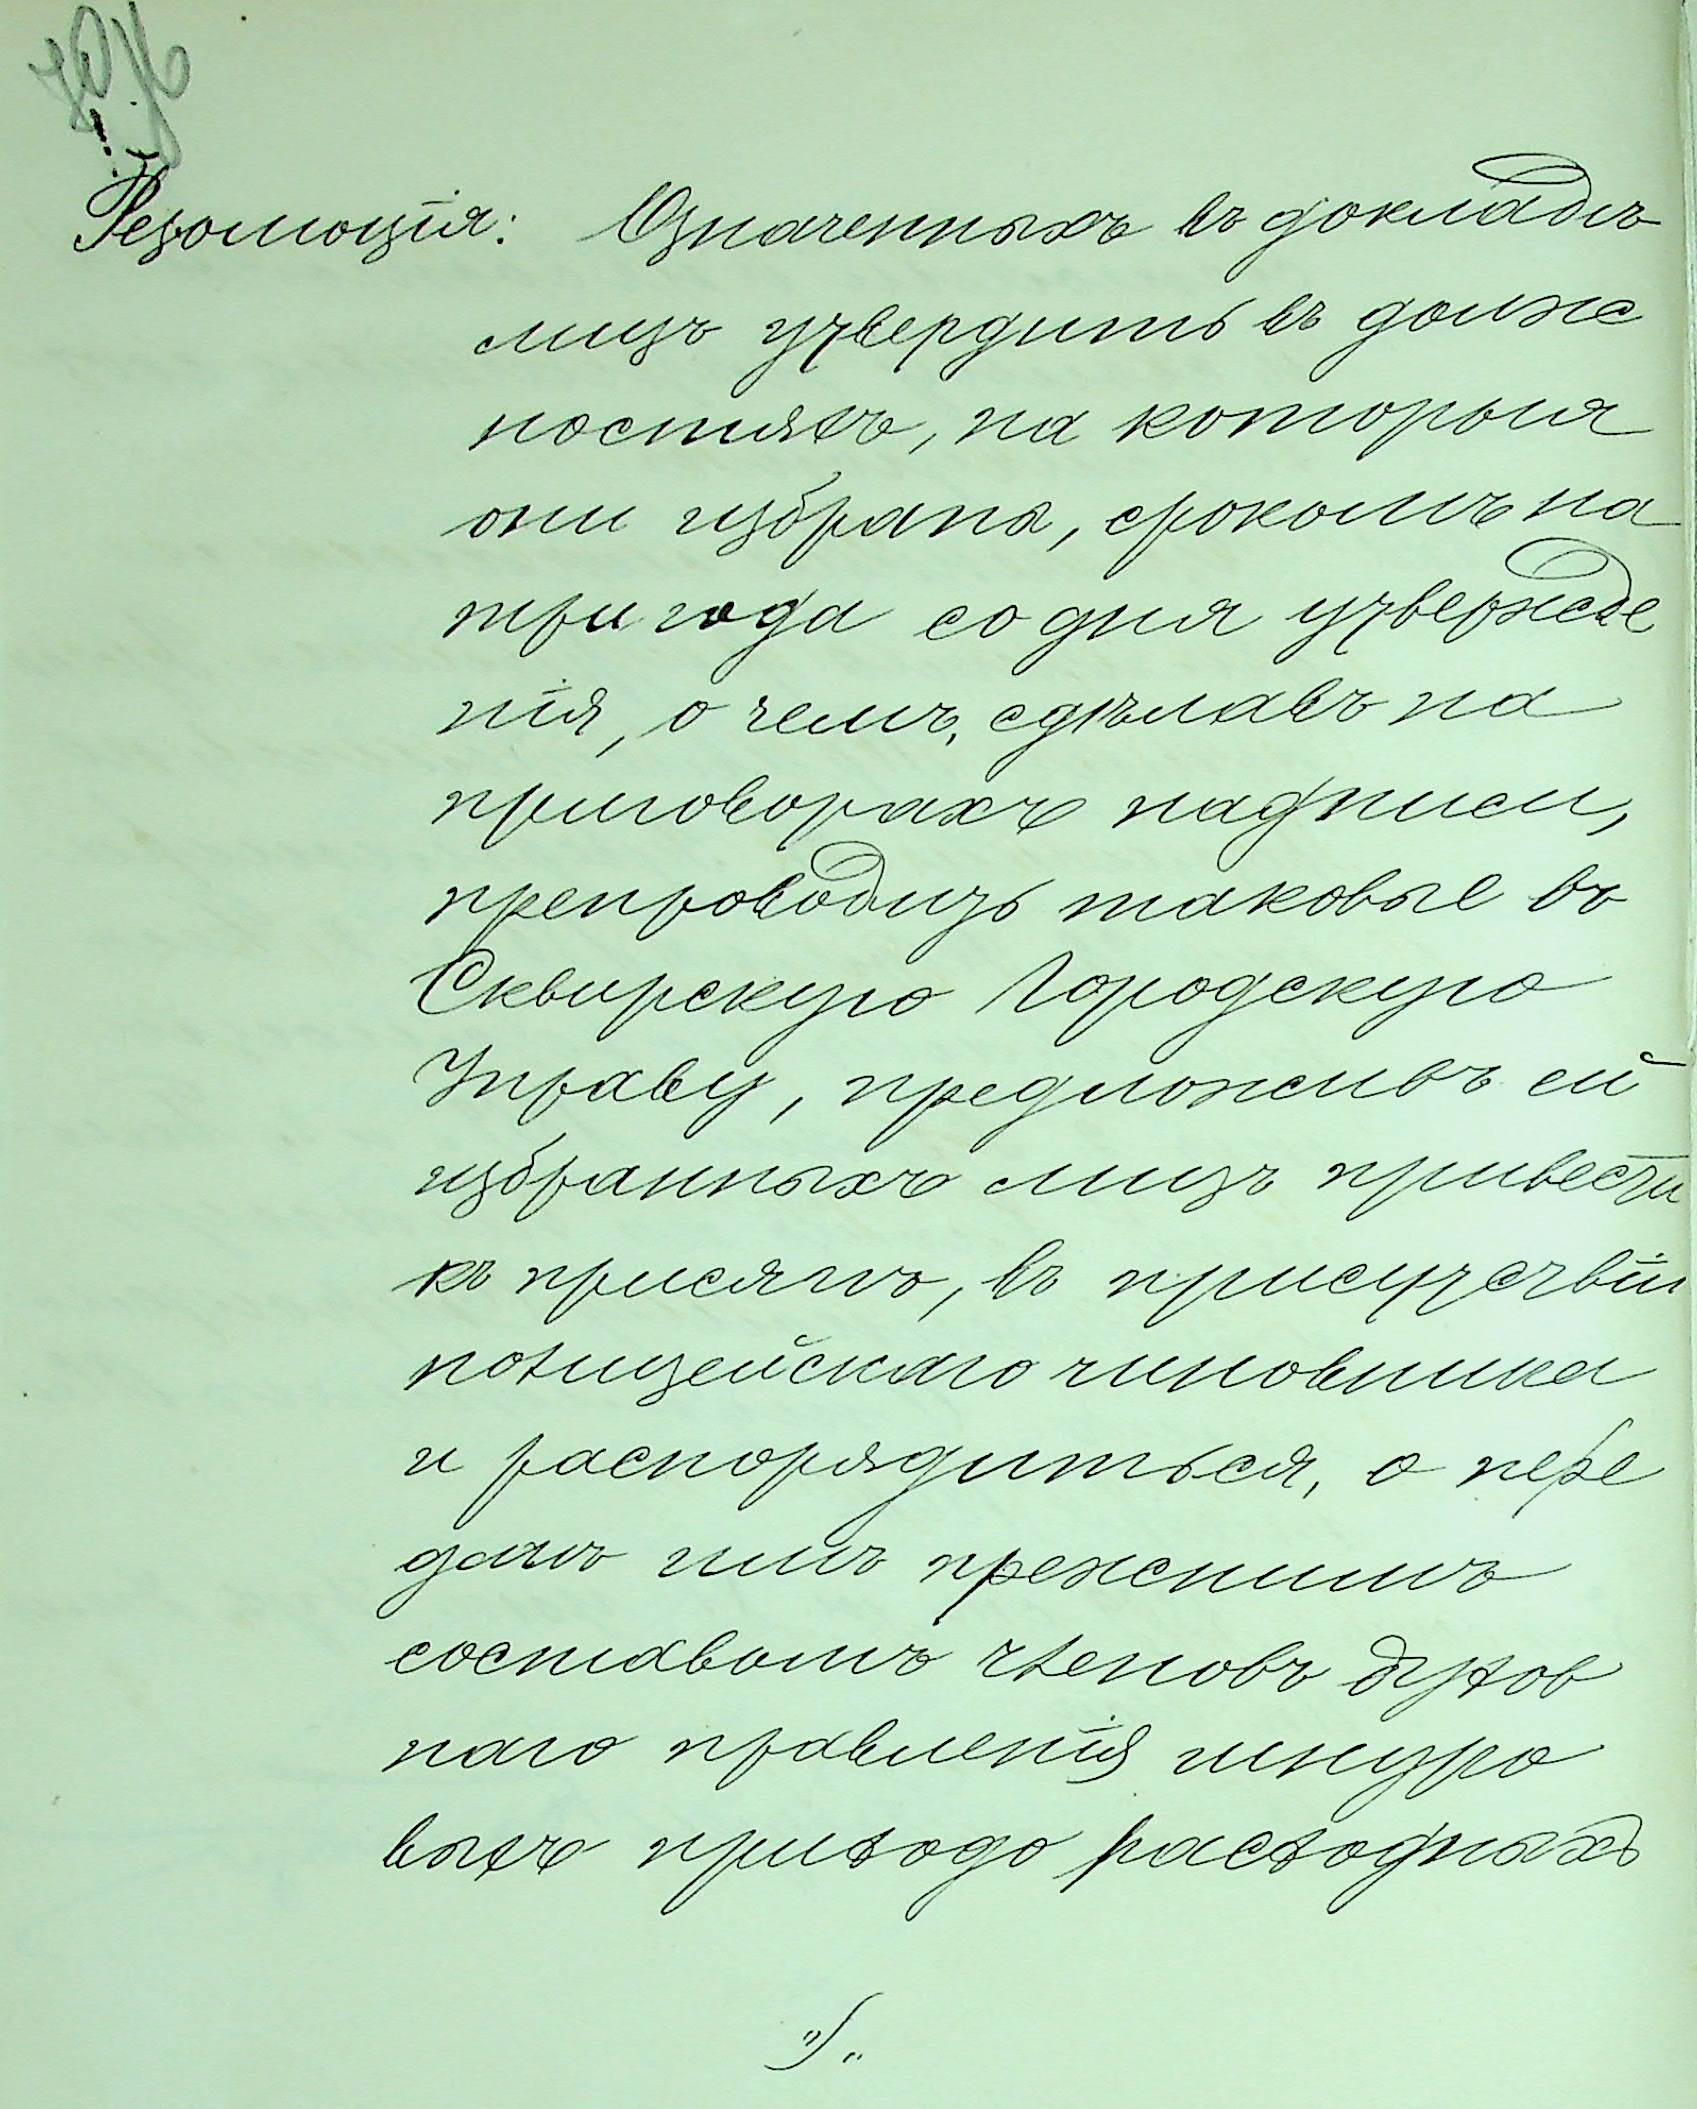 Резолюція: Означенныхъ въ докладѣ
лицъ утвердить въ долж
ностяхъ, на которыя
они избраны, срокомъ на
три года со дня утвержде
нія, о чемъ, сдѣлавъ на
приговорахъ надписи,
препроводить таковые въ
Сквирскую Городскую
Управу, предложивъ ей
избранныхъ лицъ привести
къ присягѣ, въ присутствіи
полицейскаго чиновника
и распорядиться, о пере
дачѣ имъ прежнимъ
составомъ членовъ духов
наго правленія шнуро
выхъ приходо расходныхъ